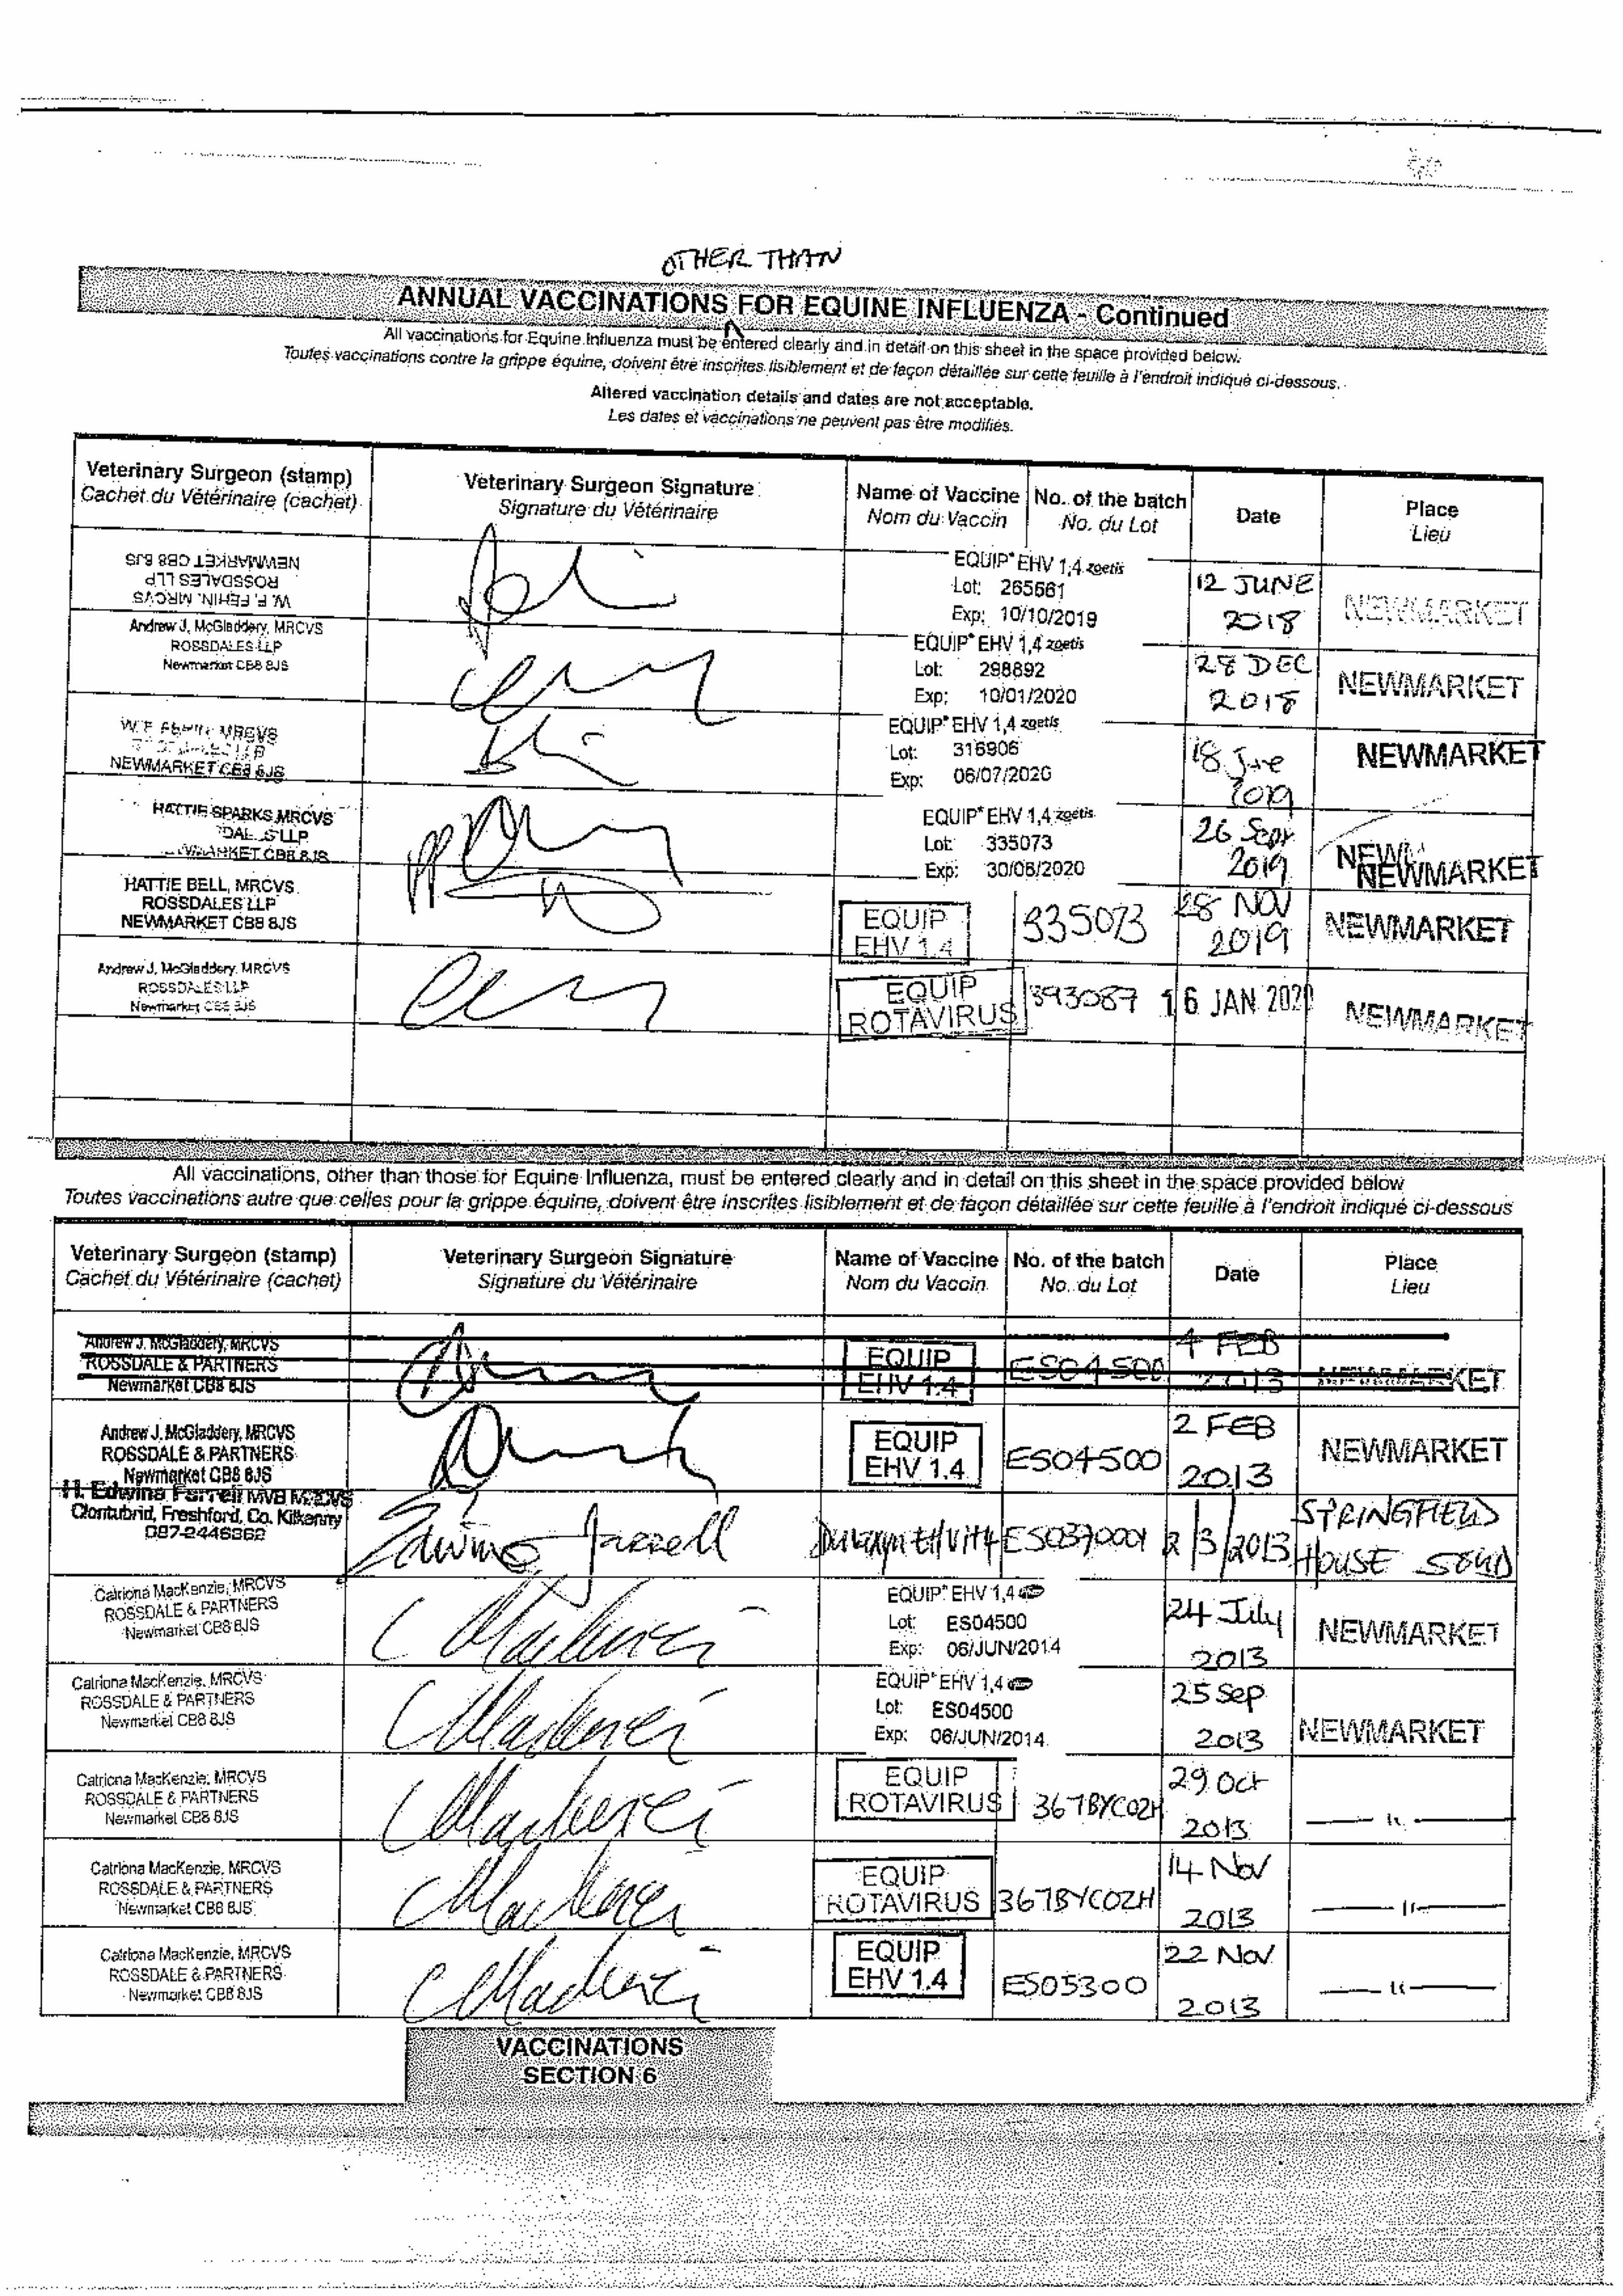 OTHER THAN
ANNUAL VACCINATIONS FOR EQUINE INFLUENZA - Continued
All vaccinations for Equine Influenza must be entered clearly and in detail on this sheet in the space provided below.
Toutes vaccinations contre la grippe équine, doivent être inscrites lisiblement et de façon détaillée sur cette feuille à l'endroit indiqué ci-dessous.
Altered vaccination details and dates are not acceptable.
Les dates et vaccinations ne peuvent pas être modifiés.
Veterinary Surgeon (stamp) Veterinary Surgeon Signature Name of Vaccine No. of the batch Date Place
Cachet du Vétérinaire (cachet) Signature du Vétérinaire Nom du Vaccin No. du Lot Lieu
W. F. FEHIN, MRCVS
ROSSDALES LLP
NEWMARKET CB8 8JS
EQUIP EHV 1,4 zoetis
Lot: 265561
Exp: 10/10/2019
12 JUNE
2018
NEWMARKET
Andrew J. McGladdery, MRCVS
ROSSDALES LLP
Newmarket CB8 8JS
EQUIP EHV 1,4 zoetis
Lot: 298892
Exp: 10/01/2020
28 DEC
2018
NEWMARKET
MRCVS
NEWMARKET CB8 8JS
EQUIP EHV 1,4 zoetis
Lot: 316906
Exp: 06/07/2020
18 June
2019
NEWMARKET
HATTIE SPARKS MRCVS
LLP
CB8 8JS
pp
EQUIP EHV 1,4 zoetis
Lot: 335073
Exp: 30/08/2020
26 Sept
2019
NEWM
NEWMARKET
HATTIE BELL, MRCVS
ROSSDALES LLP
NEWMARKET CB8 8JS
EQUIP
EHV 1.4
335073
28 NOV
2019
NEWMARKET
Andrew J. McGladdery, MRCVS
ROSSDALES LLP
Newmarket CB8 8JS
EQUIP
ROTAVIRUS
393087
16 JAN 2020
NEWMARKET
All vaccinations, other than those for Equine Influenza, must be entered clearly and in detail on this sheet in the space provided below
Toutes vaccinations autre que celles pour la grippe équine, doivent être inscrites lisiblement et de façon détaillée sur cette feuille à l'endroit indiqué ci-dessous
Veterinary Surgeon (stamp) Veterinary Surgeon Signature Name of Vaccine No. of the batch Date Place
Cachet du Vétérinaire (cachet) Signature du Vétérinaire Nom du Vaccin No. du Lot Lieu
Andrew J. McGladdery, MRCVS
ROSSDALE & PARTNERS
Newmarket CB8 8JS
EQUIP
EHV 1.4
ES04500
4 FEB
2013
NEWMARKET
Andrew J. McGladdery, MRCVS
ROSSDALE & PARTNERS
Newmarket CB8 8JS
EQUIP
EHV 1.4
ES04500
2 FEB
2013
NEWMARKET
H. Edwina Farrell MVB MRCVS
Clontubrid, Freshford, Co. Kilkenny
087-2446362
Edwina Farrell
2/3/2013
SPRINGFIELD
HOUSE STUD
Catriona MacKenzie, MRCVS
ROSSDALE & PARTNERS
Newmarket CB8 8JS
EQUIP EHV 1,4
Lot: ES04500
Exp: 06/JUN/2014
24 July
2013
NEWMARKET
Catriona MacKenzie, MRCVS
ROSSDALE & PARTNERS
Newmarket CB8 8JS
EQUIP EHV 1,4
Lot: ES04500
Exp: 06/JUN/2014
25 Sep
2013
NEWMARKET
Catriona MacKenzie, MRCVS
ROSSDALE & PARTNERS
Newmarket CB8 8JS
EQUIP
ROTAVIRUS
367BYC02H
29 Oct
2013
— " —
Catriona MacKenzie, MRCVS
ROSSDALE & PARTNERS
Newmarket CB8 8JS
EQUIP
ROTAVIRUS
367BYC02H
14 Nov
2013
— " —
Catriona MacKenzie, MRCVS
ROSSDALE & PARTNERS
Newmarket CB8 8JS
EQUIP
EHV 1.4
ES05300
22 Nov
2013
— " —
VACCINATIONS
SECTION 6